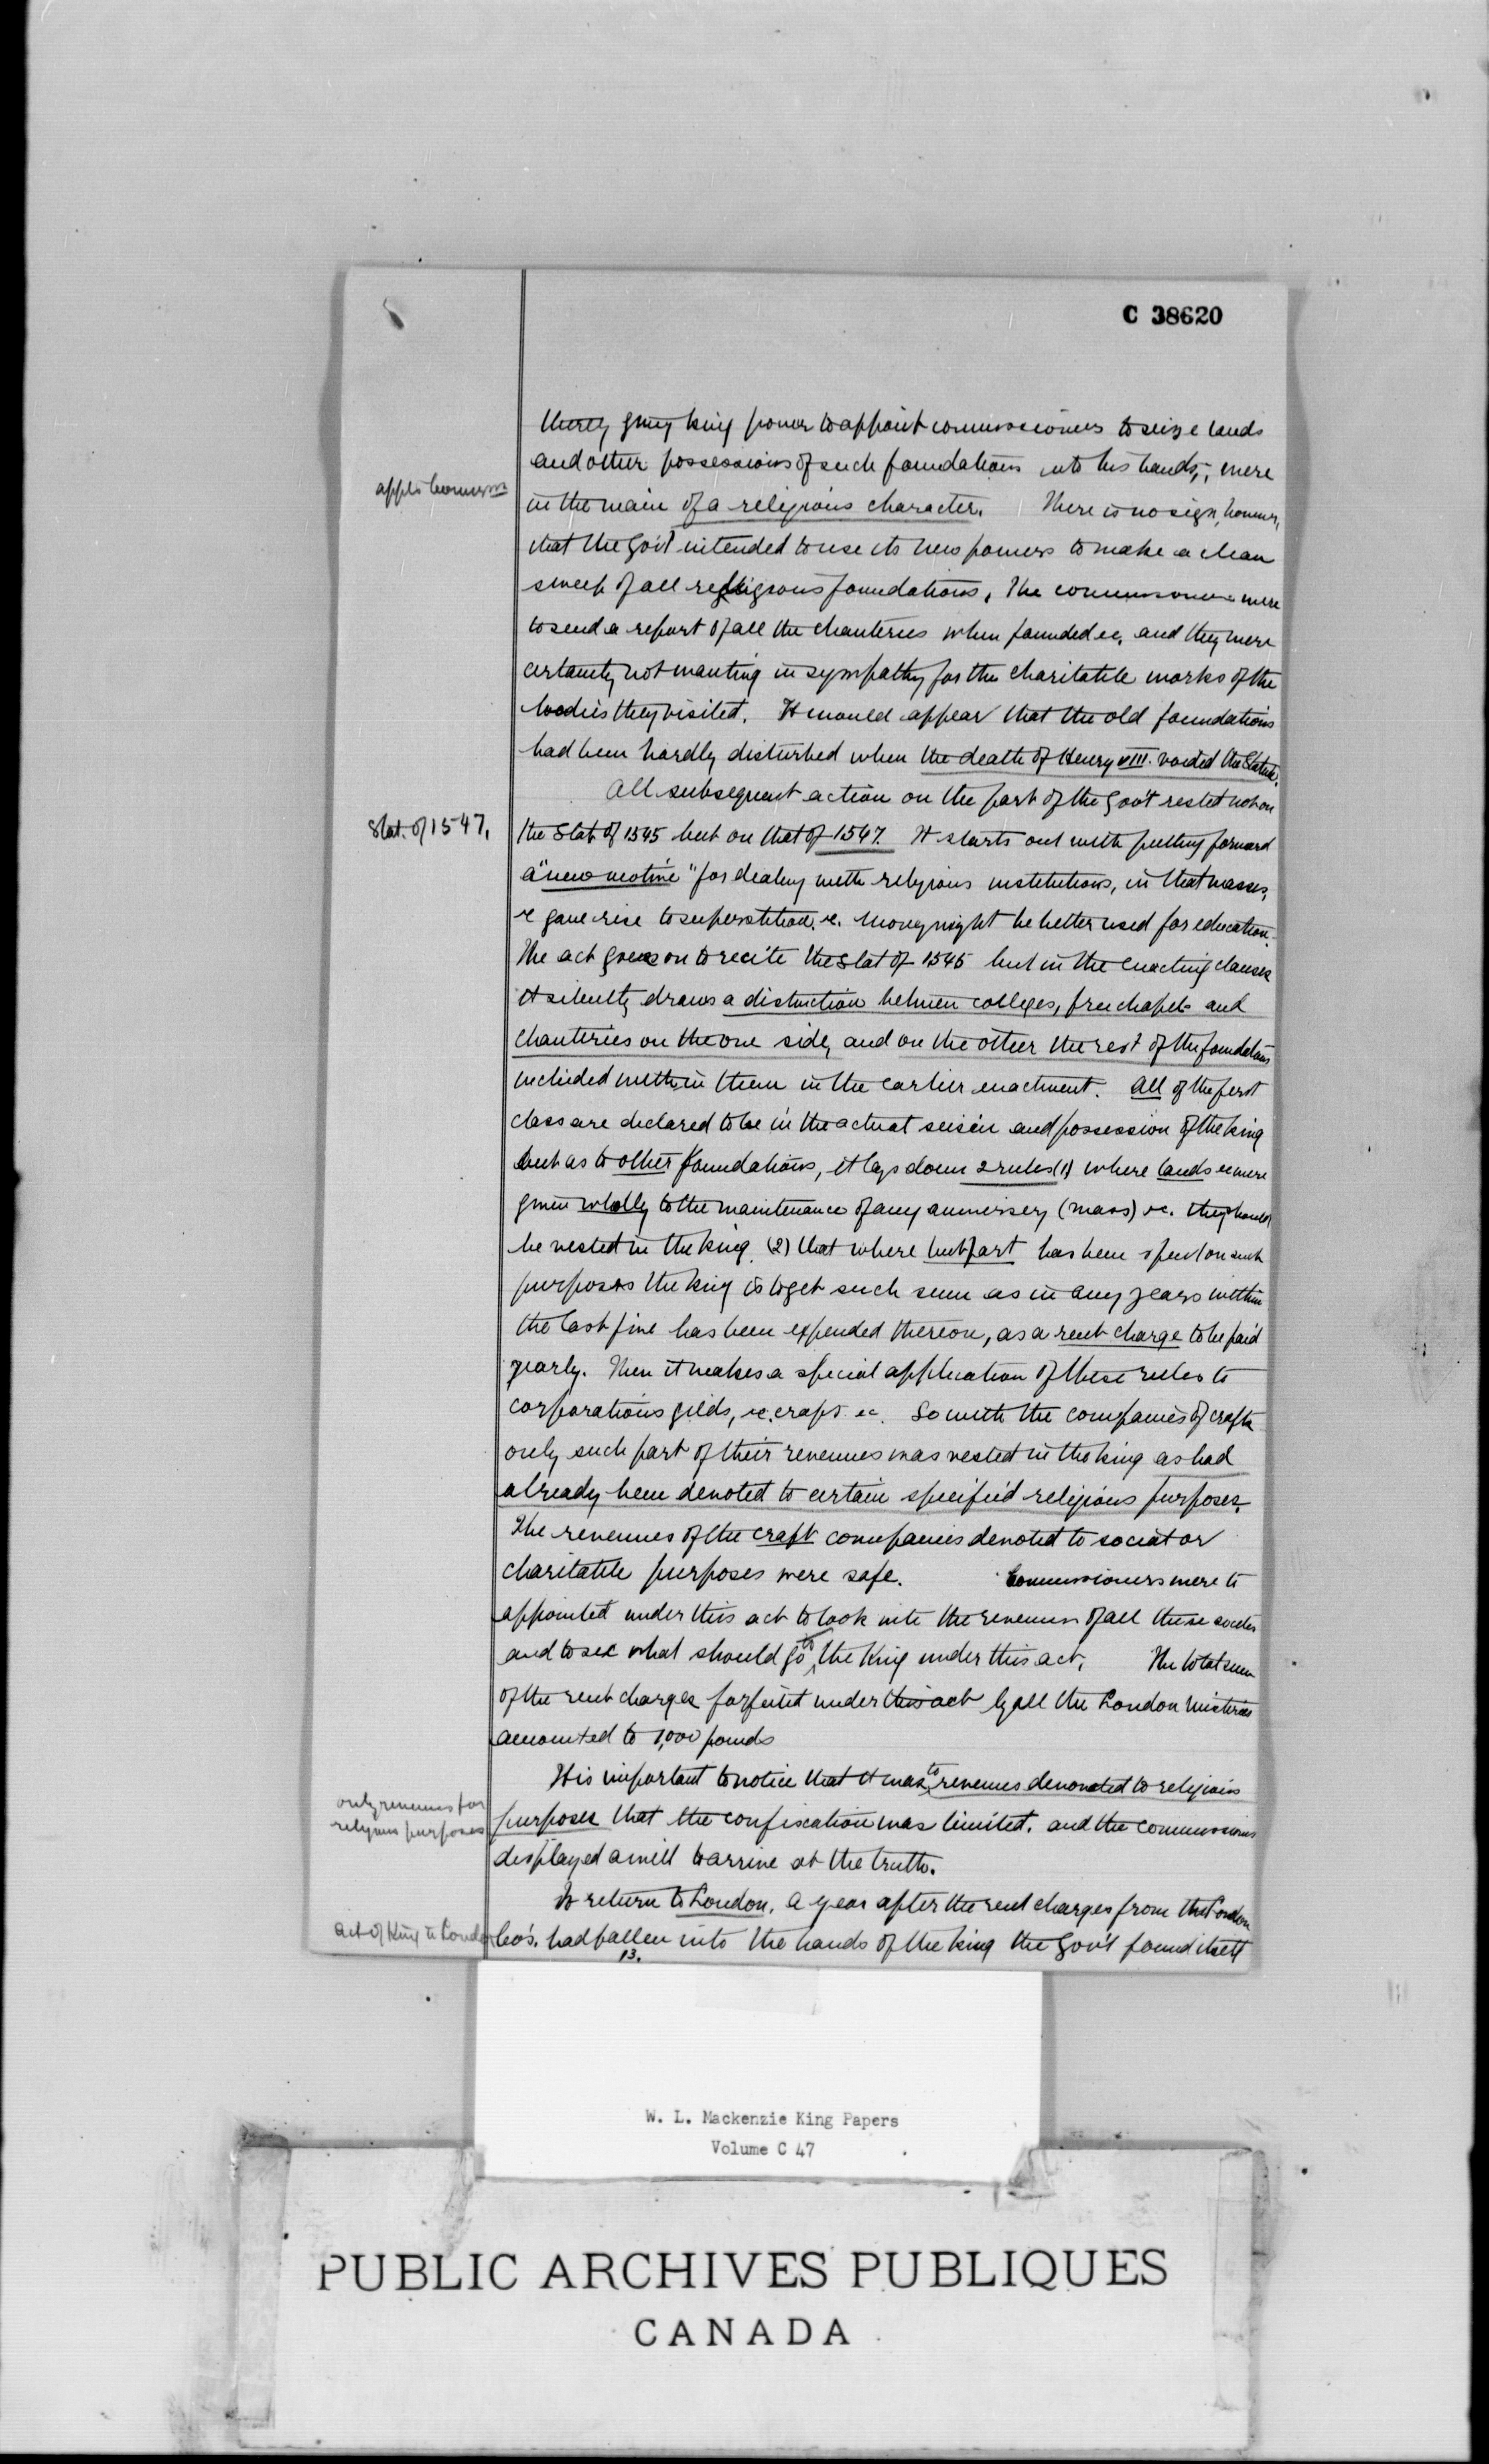 C 38620
thereby giving king power to appoint commissioners to seize lands
and other possessions of such foundations into his hands, were
appt. commrs
in the main of a religious character. There is no sign, however,
that the Gov't intended to use its new powers to make a clean
sweep of all religious foundations. The commissioners were
to send a report of all the chanteries when founded &c, and they were
certainly not wanting in sympathy for the charitable works of the
bodies they visited. It would appear that the old foundations
had been hardly disturbed when the death of Henry VIII. voided the Statute.
All subsequent action on the part of the Gov't rested not on
Stat. of 1547.
the Stat of 1545 but on that of 1547. It starts out with putting forward
a "new motive" for dealing with religious institutions, in that masses,
&c gave rise to superstition &c. Money might be better used for education.
The act goes on to recite the Stat of 1545 but in the enacting clauses
it silently draws a distinction between colleges, free chapels and
chanteries on the one side, and on the other the rest of the foundations
included within them in the earlier enactment. All of the first
class are declared to be in the actual seisin and possession of the king
but as to other foundations, it lays down 2 rules (1) where lands &c were
given wholly to the maintenance of any anniversey (mass) &c. they should
be vested in the king. (2) that where but part has been spent on such
purposes the king is to get such sum as in any years within
the last five has been expended thereon, as a rent charge to be paid
yearly. Then it makes a special application of these rules to
corporations gilds, &c. crafts &c. So with the companies of crafts
only such part of their revenues was vested in the king as had
already been devoted to certain specified religious purposes.
The revenues of the craft companies devoted to social or
charitable purposes were safe. Commissioners were to
appointed under this act to look into the revenues of all these societies
and to see what should go to the King under this act. The total sum
of the rent charges forfeited under this act by all the London misteries
amounted to 1,000 pounds
It is important to notice that it was to revenues devoted to religious
only revenues for
religious purposes
purposes that the confiscation was limited. and the commissions
displayed a will to arrive at the truth.
To return to London. A year after the rent charges from the London
act of King to London
Co's. had fallen into the hands of the king the Gov't found itself
13.
W. L. Mackenzie King Papers
Volume C 47
PUBLIC ARCHIVES PUBLIQUES
CANADA